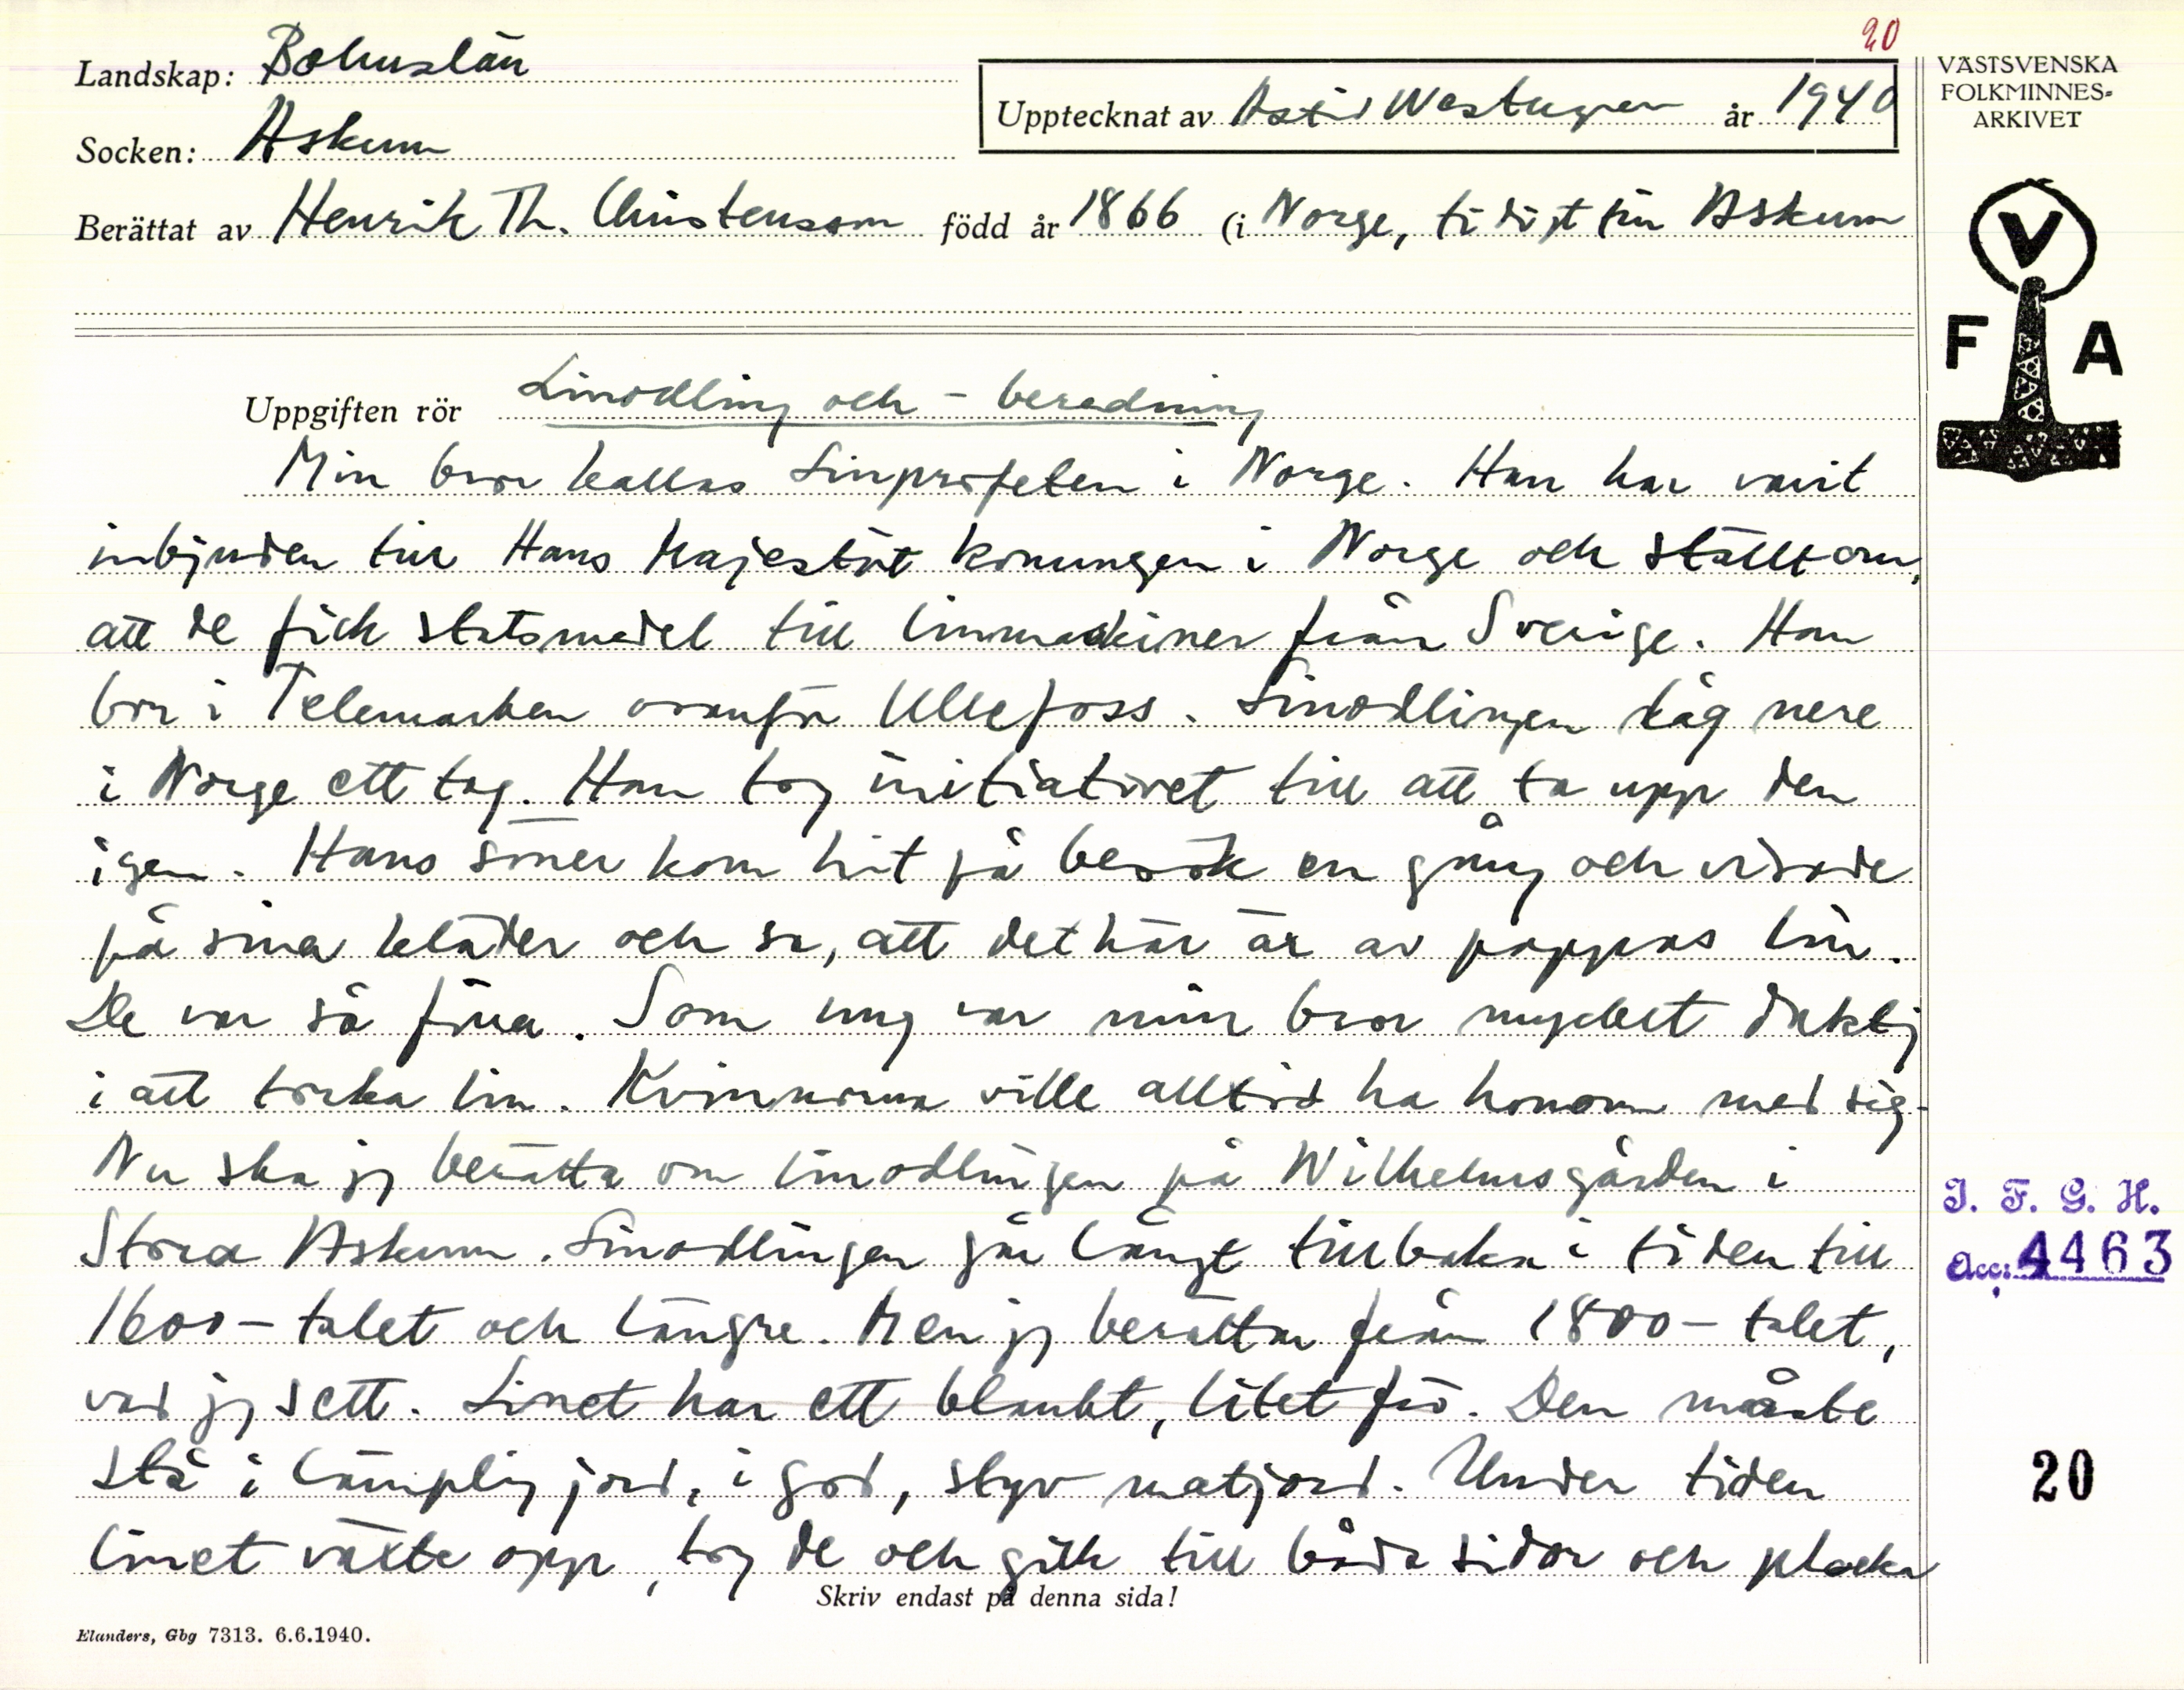 20
Landskap: Bohuslän
Socken: Askum
Upptecknat av Astrid Westergren år 1940
Berättat av Henrik Th. Christensson född år 1866 (i Norge, tidigt till Askum
VÄSTSVENSKA
FOLKMINNES-
ARKIVET
V
F A
Uppgiften rör Linodling och -beredning
Min bror kallas Linprofeten i Norge. Han har varit
inbjuden till Hans Majestät konungen i Norge och ställt om,
att de fick statsmedel till linmaskiner från Sverige. Han
bor i Telemarken ovanför Ullefoss. Linodlingen låg nere
i Norge ett tag. Han tog initiativet till att ta upp den
igen. Hans söner kom hit på besök en gång och visade
på sina kläder och sa, att det här är av pappas lin.
De var så fina. Som ung var min bror mycket duktig
i att torka lin. Kvinnorna ville alltid ha honom med sig.
Nu ska jag berätta om linodlingen på Wilhelmsgården i
Stora Askum. Linodlingen går långt tillbaka i tiden till
1600-talet och längre. Men jag berättar från 1800-talet,
vad jag sett. Linet har ett blankt, litet frö. Den måste
stå i lämplig jord, i god, styv matjord. Under tiden
linet växte opp, tog de och gick till båda sidor och plocka
I. F. G. H.
Acc: 4463
20
Skriv endast på denna sida!
Elanders, Gbg 7313. 6.6.1940.